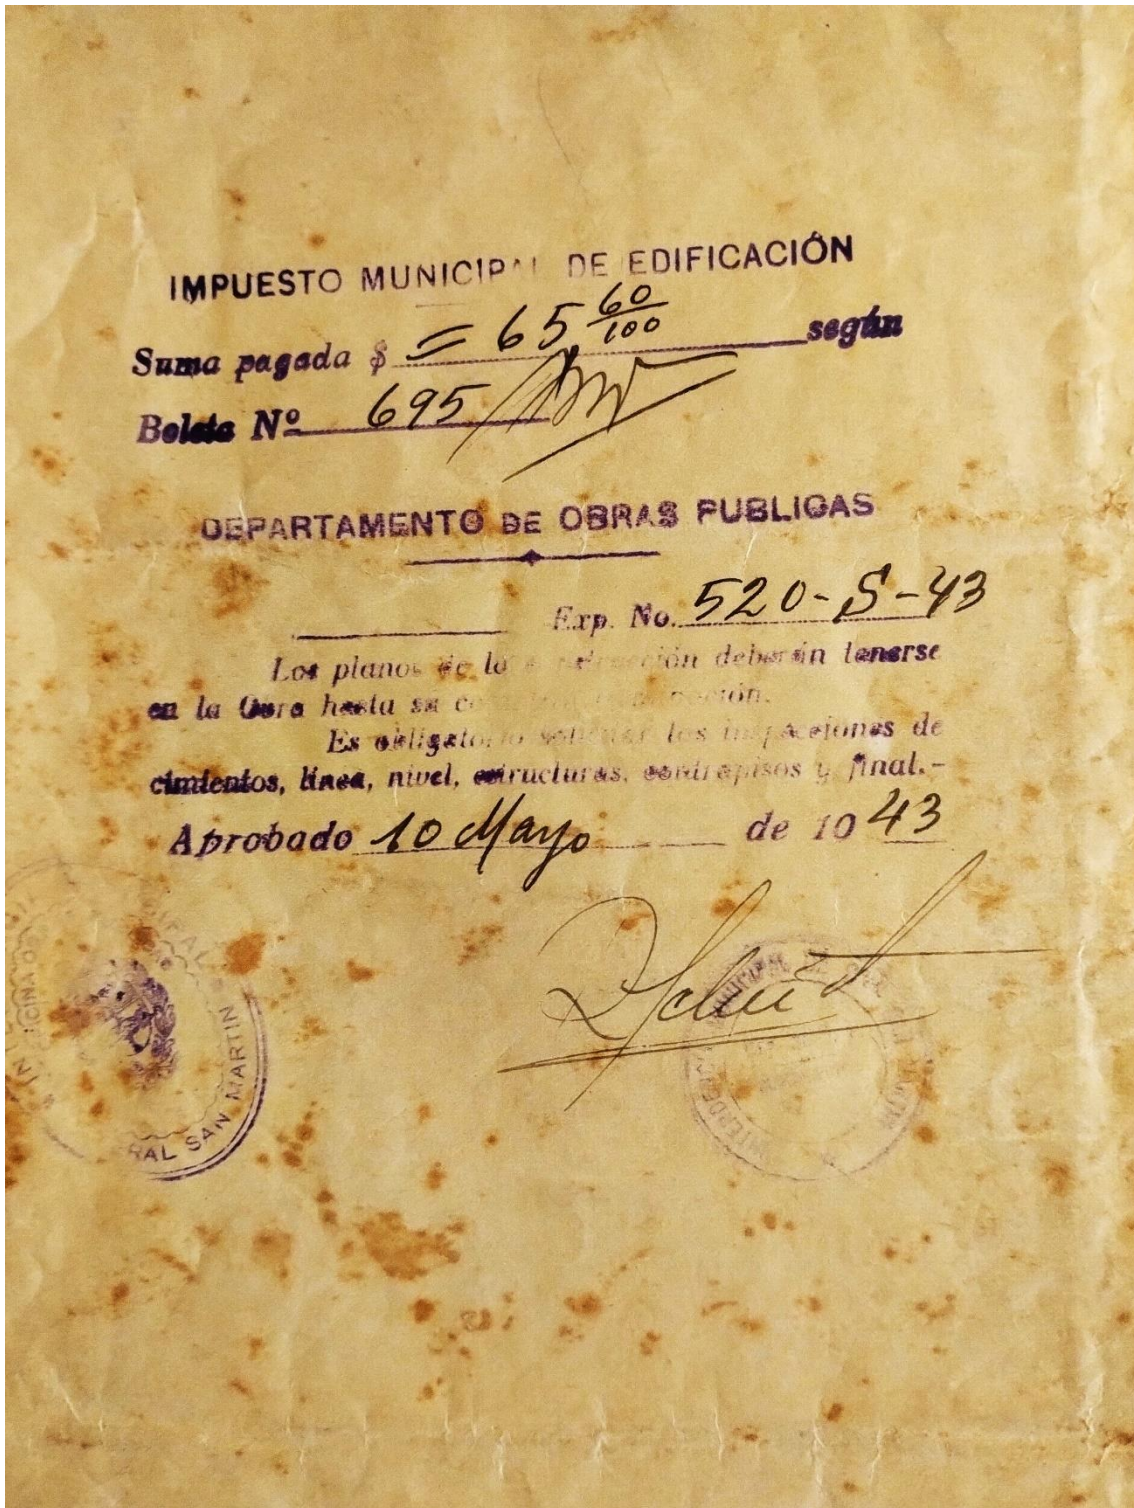 IMPUESTO MUNICIPAL DE EDIFICACIÓN
Suma pagada $ = 65 60/100 según
Boleta Nº 695
DEPARTAMENTO DE OBRAS PUBLICAS
Exp. No. 520-S-43
Los planos de la deberán tenerse
en la Obra hasta su
Es obligatorio solicitar las inspecciones de
cimientos, linea, nivel, estructuras, contrapisos y final.-
Aprobado 10 Mayo de 1943
RAL SAN MARTIN